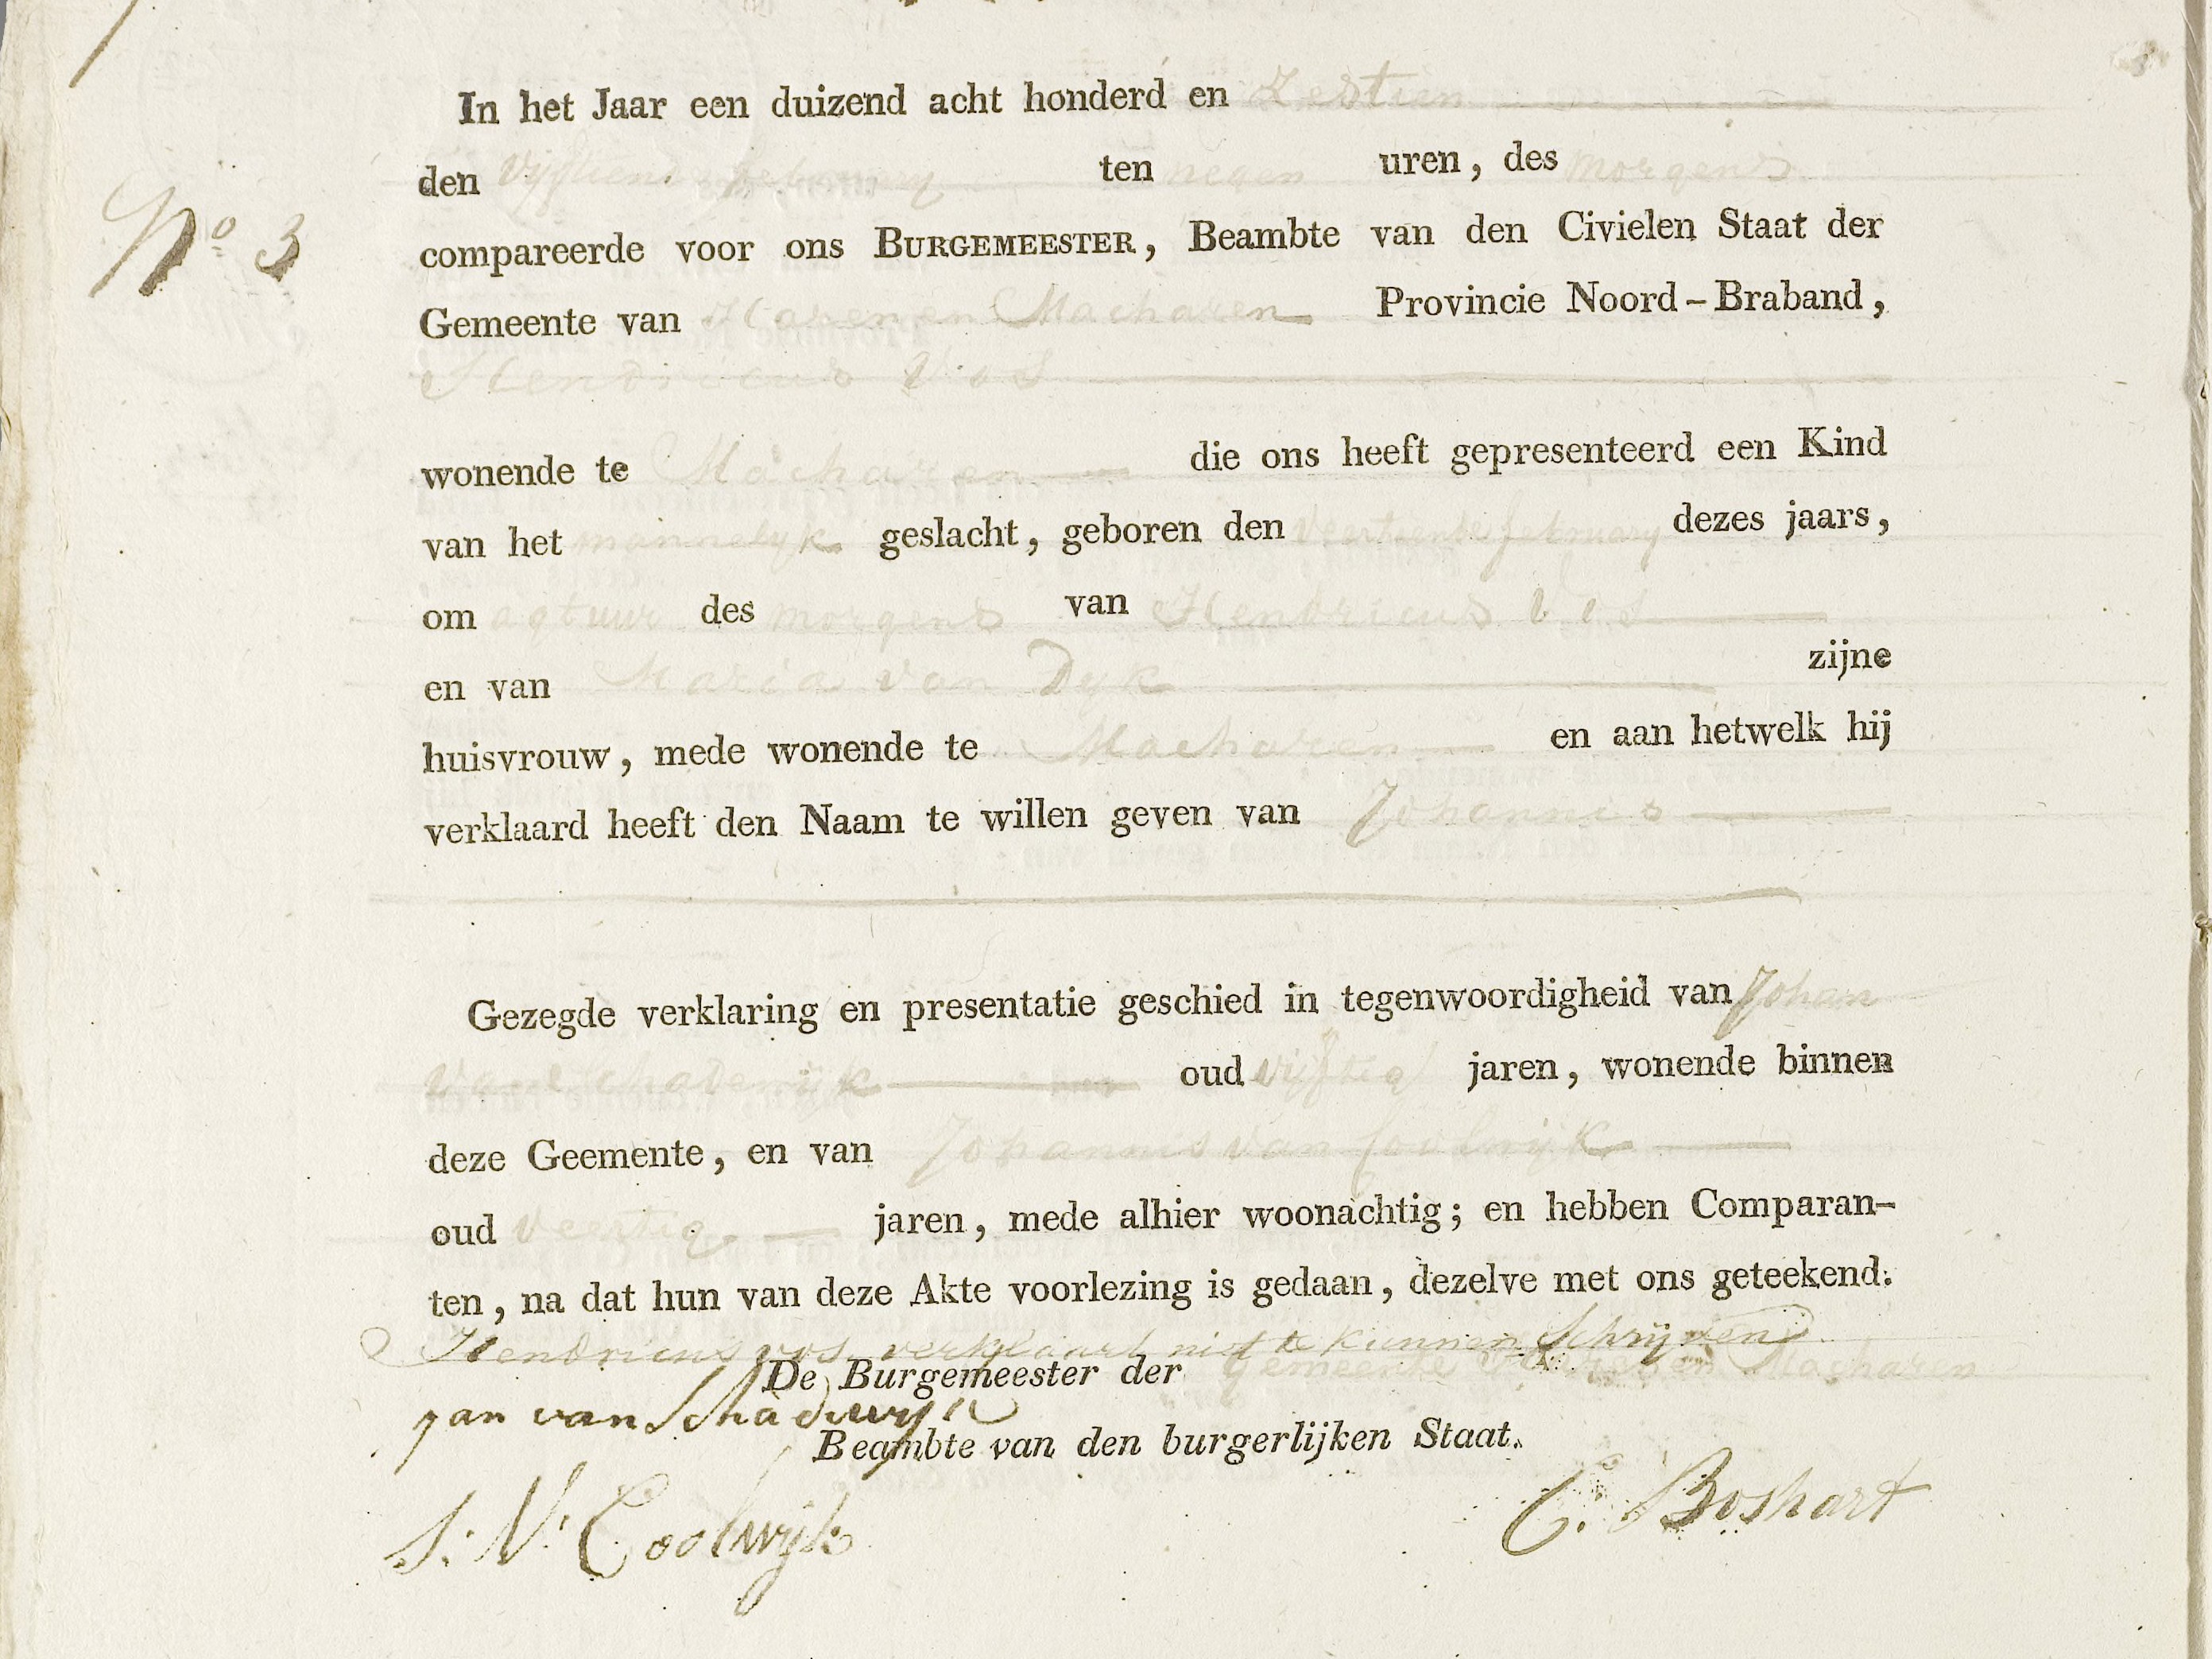 In het Jaar een duizend acht honderd en Zestien
den vyftiende february ten negen uren, des morgens
No 3
compareerde voor ons BURGEMEESTER, Beambte van den Civielen Staat der
Gemeente van Haren en Macharen Provincie Noord-Braband,
Hendricus Vos
wonende te Macharen die ons heeft gepresenteerd een Kind
van het mannelyk geslacht, geboren den veertiende february dezes jaars,
om agt uur des morgens van Hendricus Vos
en van Maria van Dyk zijne
huisvrouw, mede wonende te Macharen en aan hetwelk hij
verklaard heeft den Naam te willen geven van Johannis
Gezegde verklaring en presentatie geschied in tegenwoordigheid van Johan
van Schadewijk oud vijftig jaren, wonende binnen
deze Geemente, en van Johannis van Coolwijk
oud veertig jaren, mede alhier woonachtig; en hebben Comparan-
ten, na dat hun van deze Akte voorlezing is gedaan, dezelve met ons geteekend.
Hendricus vos verklaart niet te kunnen Schrijven
De Burgemeester der Gemeente Haren en Macharen
jan van Schadewyk
Beambte van den burgerlijken Staat.
J: V: Coolwijk
C. Boshart